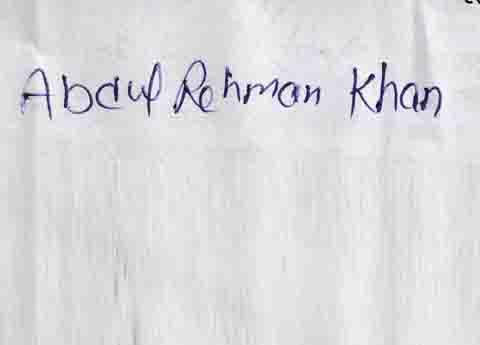 Abdul Rehman Khan